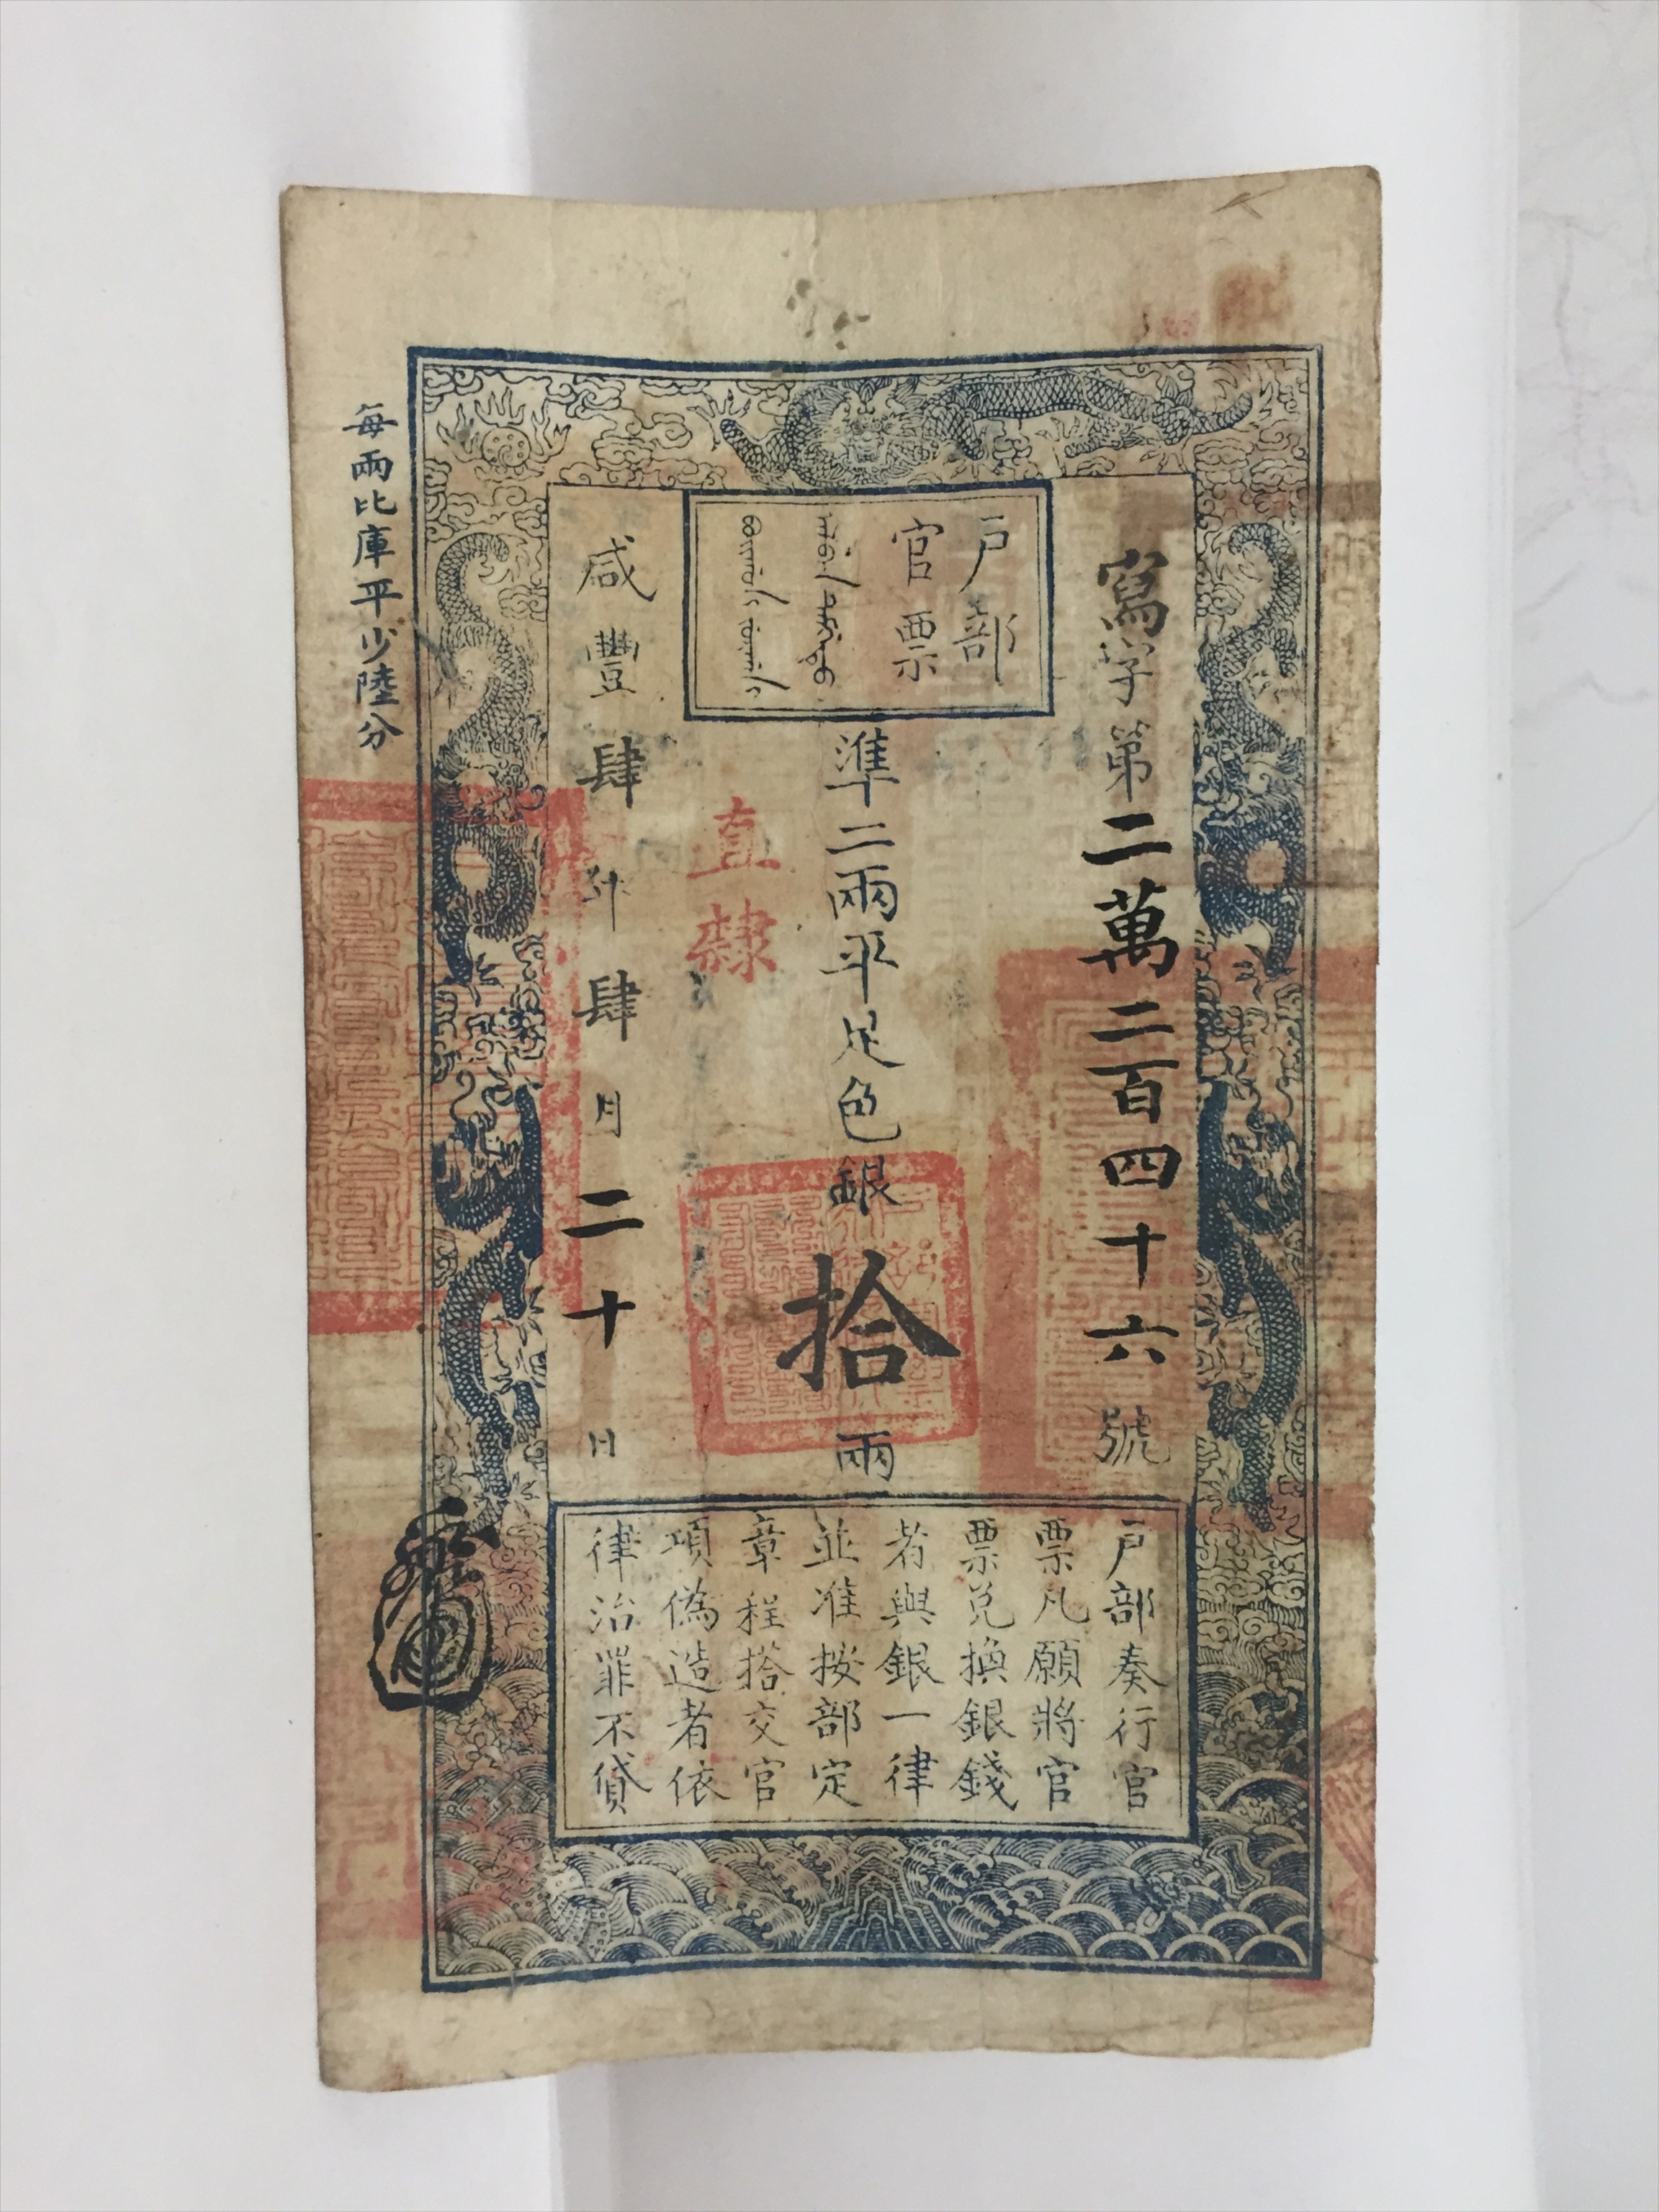 寫字第二萬二百四十六號
戶部
官票
準二兩平足色銀拾兩
直隸
咸豐肆年肆月二十日
每兩比庫平少陸分
戶部奏行官
票凡願將官
票兌換銀錢
者與銀一律
並准按部定
章程搭交官
項偽造者依
律治罪不貸